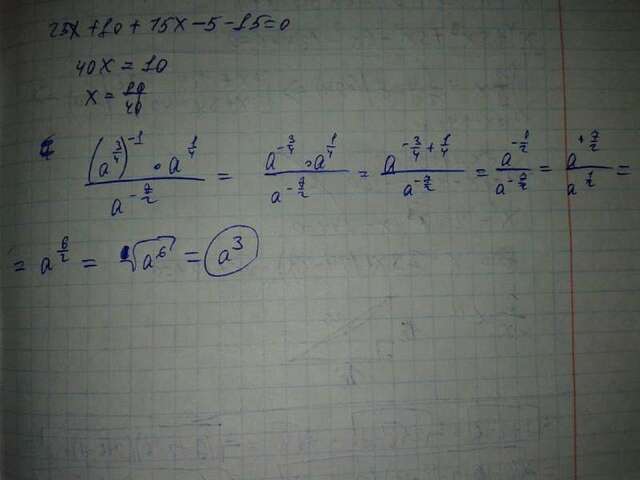 25x + 10 + 15x - 5 - 15 = 0
40x = 10
x = 10/40
((a^(3/4))^(-1) · a^(1/4)) / a^(-7/2) = (a^(-3/4) · a^(1/4)) / a^(-7/2) = a^(-3/4 + 1/4) / a^(-7/2) = a^(-1/2) / a^(-7/2) = a^(+7/2) / a^(1/2) =
= a^(6/2) = √(a^6) = a^3